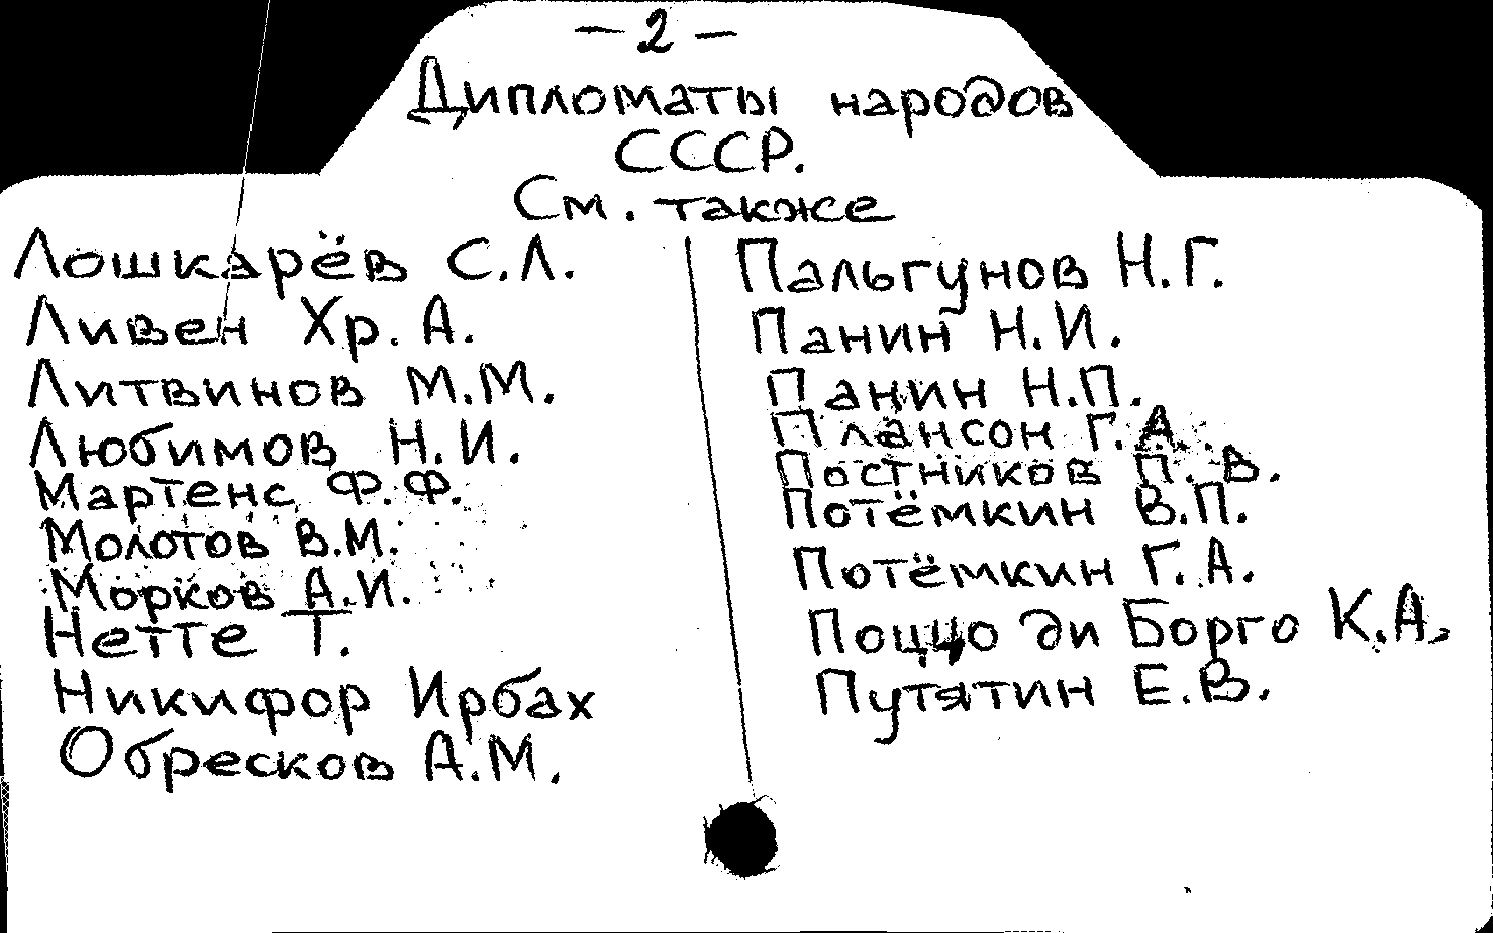 — 2 —
Дипломаты народов
СССР.
См. также
Лошкарёв С.Л.
Ливен Хр. А.
Литвинов М.М.
Любимов Н.И.
Мартенс Ф.Ф.
Молотов В.М.
Морков А.И.
Нетте Т.
Никифор Ирбах
Обресков А.М.
Пальгунов Н.Г.
Панин Н.И.
Панин Н.П.
Плансон Г.А.
Постников П.В.
Потёмкин В.П.
Потёмкин Г.А.
Поццо ди Борго К.А.
Путятин Е.В.